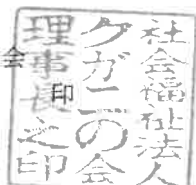 社会福祉法人
クガニの会
理事長之印
会 印